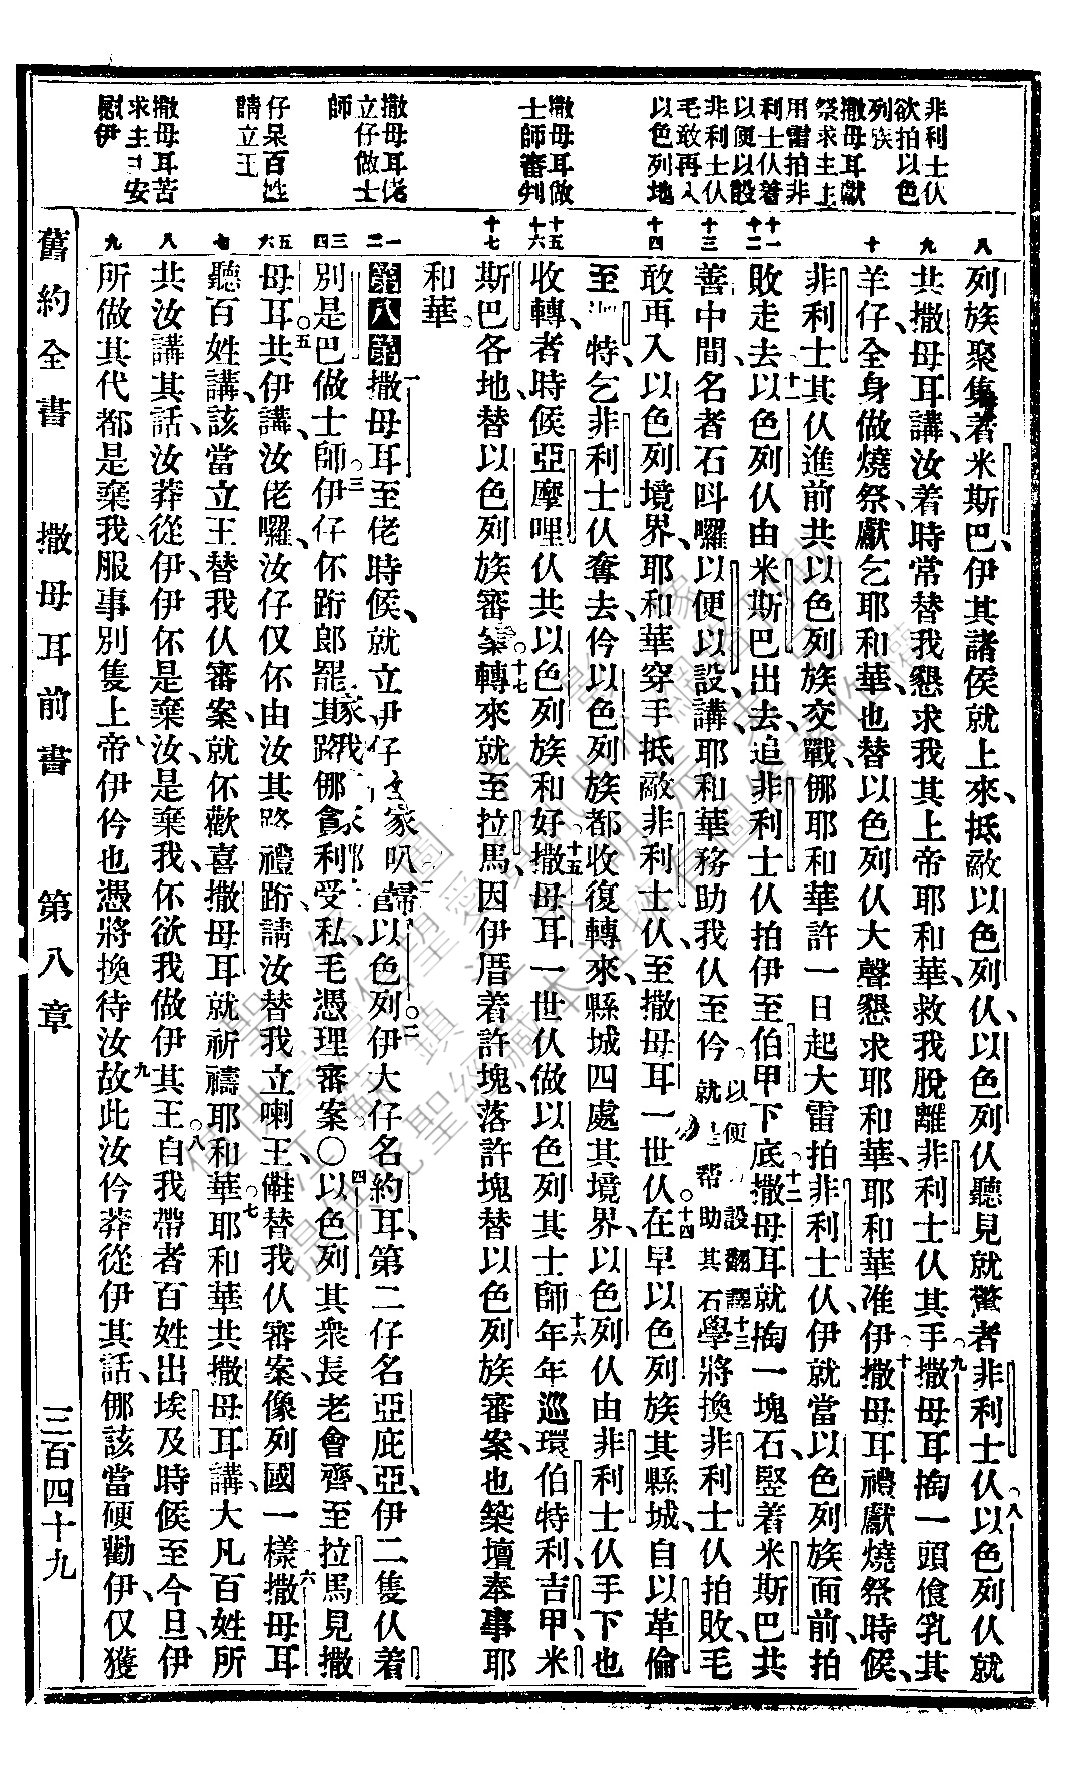 非利士仈
欲拍以色
列族
撒母耳獻
祭求主上
用雷拍非
利士仈着
以便以設
非利士仈
毛敢再入
以色列地
撒母耳做
士師審判
撒母耳佬
立仔做士
師
仔呆百姓
請立王
撒母耳苦
求主
安
慰伊
八
九
十
十一
十二
十三
十四
十五
十六
十七
一
二
三
四
五
六
七
八
九
列族聚集着米斯巴、伊其諸侯就上來、抵敵以色列仈、以色列仈聽見就驚者非利士仈。八以色列仈就
共撒母耳講、汝着時常替我懇求我其上帝耶和華、救我脫離非利士仈其手。九撒母耳掏一頭食乳其
羊仔、全身做燒祭、獻乞耶和華、也替以色列仈大聲懇求耶和華、耶和華准伊。十撒母耳禮獻燒祭時候、
非利士其仈進前共以色列族交戰、那耶和華許一日起大雷拍非利士仈、伊就當以色列族面前、拍
敗走去。十一以色列仈由米斯巴出去、追非利士仈拍伊至伯甲下底。十二撒母耳就掏一塊石、竪着米斯巴共
善中間、名者石呌囉以便以設、講、耶和華務助我仈至仱。以便以設翻譯就是幫助其石十三學將換非利士仈拍敗、毛
敢再入以色列境界、耶和華穿手抵敵非利士仈、至撒母耳一世仈在早。十四以色列族其縣城、自以革倫
至
特、乞非利士仈奪去、仱以色列族都收復轉來、縣城四處其境界、以色列仈由非利士仈手下也
收轉者時候、亞摩哩仈共以色列族和好。十五撒母耳一世仈做以色列其士師。十六年年巡環伯特利、吉甲、米
斯巴各地、替以色列族審案。十七轉來就至拉馬、因伊厝着許塊、落許塊替以色列族審案、也築壇奉事耶
和華。
第八章一撒母耳至佬時候、就立伊仔
管以色列。二伊大仔名約耳、第二仔名亞庇亞、伊二隻仈着
別是巴做士師。三伊仔伓跡郎罷其路、那貪利受私、毛憑理審案〇四以色列其衆長老會齊、至拉馬見撒
母耳。五共伊講、汝佬囉、汝仔仅伓由汝其路禮跡、請汝替我立喇王、傩替我仈審案、像列國一樣。六撒母耳
聽百姓講、該當立王替我仈審案、就伓歡喜、撒母耳就祈禱耶和華。七耶和華共撒母耳講、大凡百姓所
共汝講其話、汝莽從伊、伊伓是棄汝、是棄我、伓欲我做伊其王。八自我帶者百姓出埃及時候、至今旦、伊
所做其代都是棄我、服事別隻上帝、伊仱也憑將換待汝。九故此汝仱莽從伊其話、那該當硬勸伊、仅獲
舊約全書　撒母耳前書　第八章　三百四十九